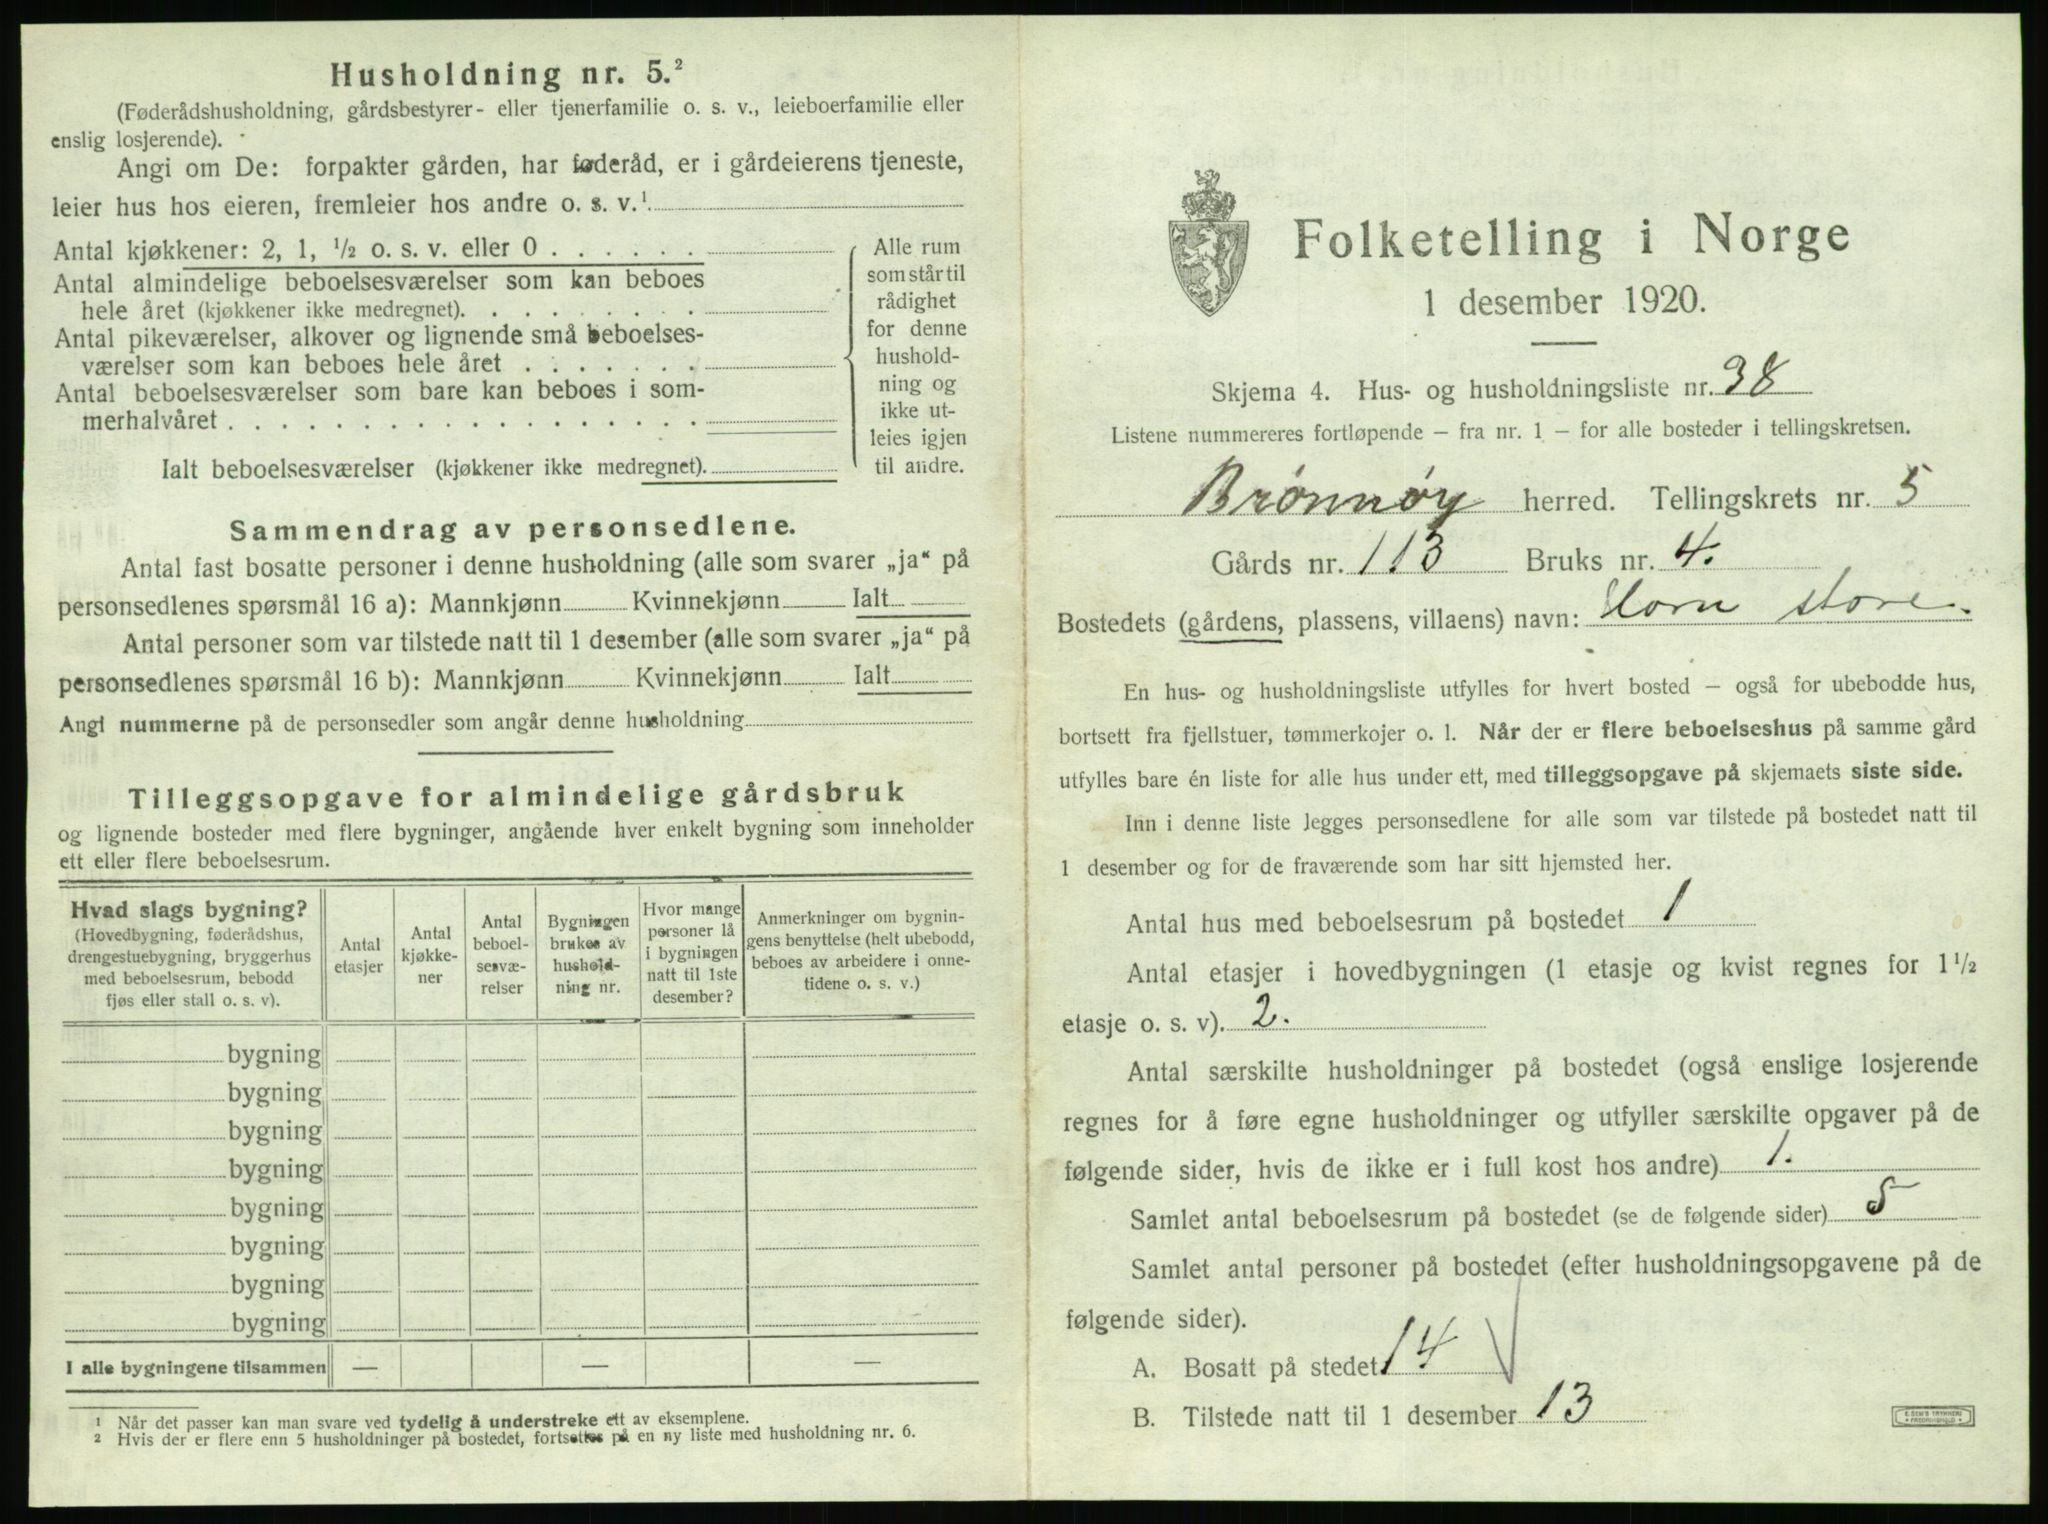 Husholdning nr. 5.²
(Føderådshusholdning, gårdsbestyrer- eller tjenerfamilie o. s. v., leieboerfamilie eller
enslig losjerende).
Angi om De: forpakter gården, har føderåd, er i gårdeierens tjeneste,
leier hus hos eieren, fremleier hos andre o. s. v.¹
Antal kjøkkener: 2, 1, ½ o. s. v. eller 0 . . . . . .
Antal almindelige beboelsesværelser som kan beboes
hele året (kjøkkener ikke medregnet). . . . . . . . .
Antal pikeværelser, alkover og lignende små beboelses-
værelser som kan beboes hele året . . . . . . .
Antal beboelsesværelser som bare kan beboes i som-
merhalvåret . . . . . . . . . . . . . . . . . .
Ialt beboelsesværelser (kjøkkener ikke medregnet).
Alle rum
som står til
rådighet
for denne
hushold-
ning og
ikke ut-
leies igjen
til andre.
Sammendrag av personsedlene.
Antal fast bosatte personer i denne husholdning (alle som svarer „ja“ på
personsedlenes spørsmål 16 a): Mannkjønn Kvinnekjønn Ialt
Antal personer som var tilstede natt til 1 desember (alle som svarer „ja“ på
personsedlenes spørsmål 16 b): Mannkjønn Kvinnekjønn Ialt
Angi nummerne på de personsedler som angår denne husholdning
Tilleggsopgave for almindelige gårdsbruk
og lignende bosteder med flere bygninger, angående hver enkelt bygning som inneholder
ett eller flere beboelsesrum.
Hvad slags bygning?
(Hovedbygning, føderådshus,
drengestuebygning, bryggerhus
med beboelsesrum, bebodd
fjøs eller stall o. s. v).
Antal
etasjer
Antal
kjøkke-
ner
Antal
beboel-
sesvæ-
relser
Bygningen
brukes av
hushold-
ning nr.
Hvor mange
personer lå
i bygningen
natt til 1ste
desember?
Anmerkninger om bygnin-
gens benyttelse (helt ubebodd,
beboes av arbeidere i onne-
tidene o. s. v.)
bygning
bygning
bygning
bygning
bygning
bygning
bygning
bygning
I alle bygningene tilsammen — — —
¹ Når det passer kan man svare ved tydelig å understreke ett av eksemplene.
² Hvis der er flere enn 5 husholdninger på bostedet, fortsettes på en ny liste med husholdning nr. 6.
Folketelling i Norge
1 desember 1920.
Skjema 4. Hus- og husholdningsliste nr. 38
Listene nummereres fortløpende – fra nr. 1 – for alle bosteder i tellingskretsen.
Brønnøy herred. Tellingskrets nr. 5
Gårds nr. 113 Bruks nr. 4.
Bostedets (gårdens, plassens, villaens) navn: Horn store.
En hus- og husholdningsliste utfylles for hvert bosted – også for ubebodde hus,
bortsett fra fjellstuer, tømmerkojer o. l. Når der er flere beboelseshus på samme gård
utfylles bare én liste for alle hus under ett, med tilleggsopgave på skjemaets siste side.
Inn i denne liste legges personsedlene for alle som var tilstede på bostedet natt til
1 desember og for de fraværende som har sitt hjemsted her.
Antal hus med beboelsesrum på bostedet 1
Antal etasjer i hovedbygningen (1 etasje og kvist regnes for 1½
etasje o. s. v). 2.
Antal særskilte husholdninger på bostedet (også enslige losjerende
regnes for å føre egne husholdninger og utfyller særskilte opgaver på de
følgende sider, hvis de ikke er i full kost hos andre) 1.
Samlet antal beboelsesrum på bostedet (se de følgende sider) 5
Samlet antal personer på bostedet (efter husholdningsopgavene på de
følgende sider).
A. Bosatt på stedet 14
B. Tilstede natt til 1 desember 13